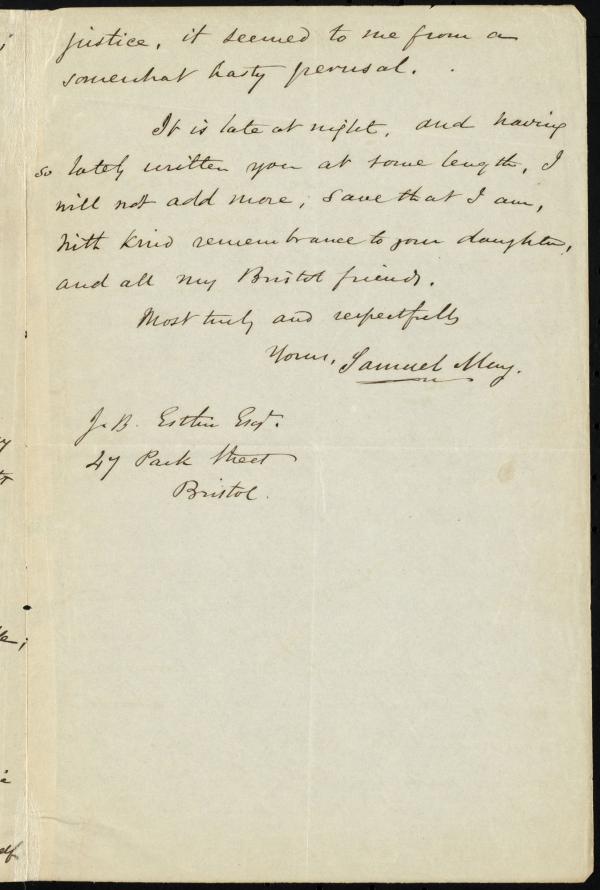 justice, it seemed to me from a
somewhat hasty perusal.
It is late at night, and having
so lately written you at some length, I
will not add more, save that I am,
with kind remembrance to your daughter,
and all my Bristol friends.
Most truly and respectfully
Yours, Samuel May.
J. B. Estlin Esqr.
47 Park Street
Bristol.